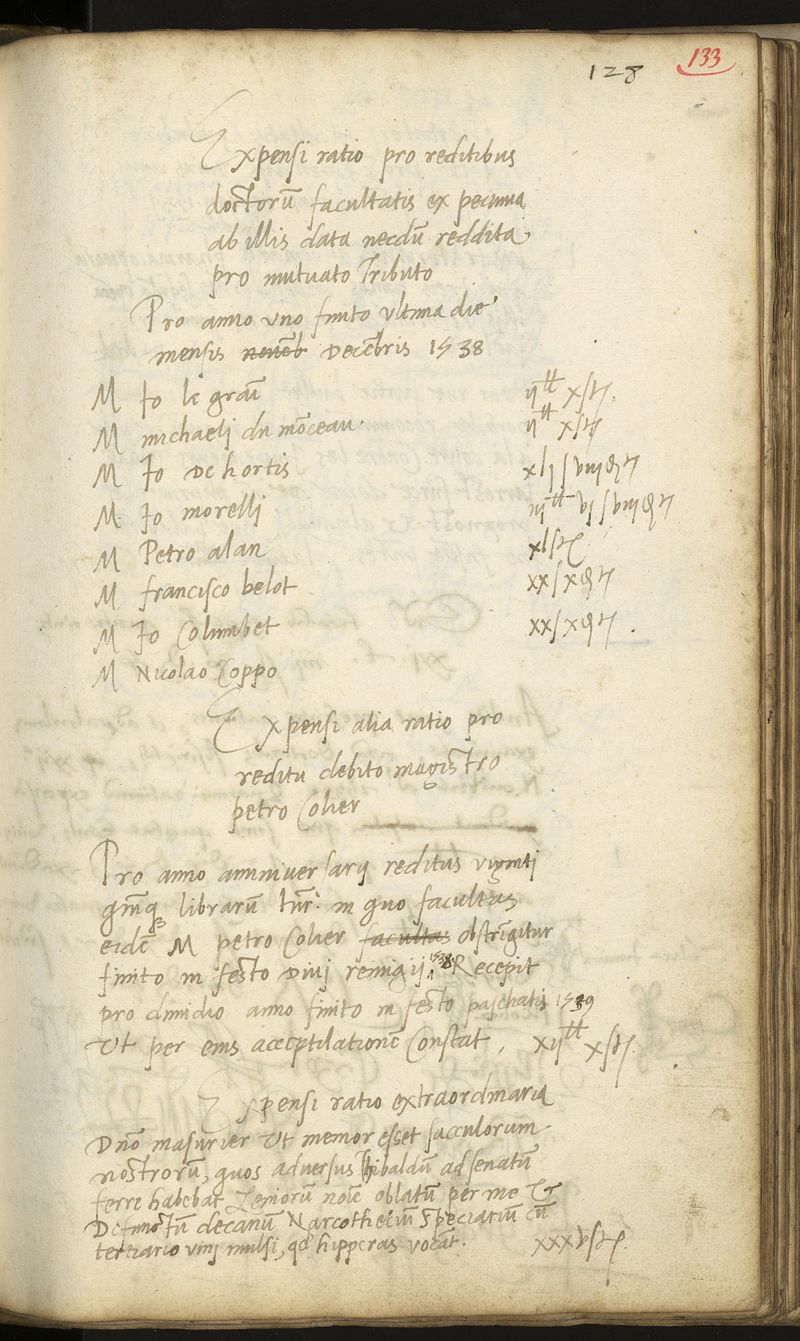 128 133
Expensi ratio pro reditibus
doctorũ facultatis ex pecunia
ab illis data necdũ reddita
pro mutuato Tributo
Pro anno uno finito ultima die
mensis novẽb Decẽbris 1538
M Jo le grãt ij^tt x s t.
M michaeli du mõceau ij^tt x s t
M Jo De hortis xlj s viij d t
M Jo morelli iij^tt vj s viij d t
M Petro alan xl s t
M francisco belot xx s x d t
M Jo Columbet xx s x d t.
M Nicolao Coppo
Expensi alia ratio pro
reditu debito magistro
petro Colier
Pro anno anniversarij reditus viginti
quĩq librarũ tur. in quo facultas
eidẽ M petro Colier facultas obstrĩgitur
finito in festo Divj remigij 1538 Recepit
pro dimidio anno finito in festo paschatis 1539
Ut per eius acceptilationẽ Constat, xij^tt x s t.
Expensi ratio extraordinaria
Dño masurier Ut memor esset sacculorum
nostrorũ, quos adversus Thibaldũ ad senatũ
ferre habebat Zeniorũ noĩe oblatũ per me &
Defunctũ decanũ Narcotheciũ Speciariũ cũ
tertiario vinj mulsi, qd hipperas vocãt. xxxv s t.